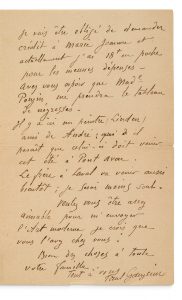 je vais être obligé de demander
crédit à Marie Jeanne et
actuellement j'ai 18f en poche
pour les menues dépenses —
Avez vous espoir que Mad.e
prendra le tableau
la négresse —
Il y a ici un peintre
ami de André; puis il
paraît que celui ci doit venir
cet été à Pont aven.
Le frère à Laval va venir aussi
bientôt; je serai moins seul.
Voulez vous être assez
aimable pour m'envoyer
l'Art moderne je crois que
vous l'avez chez vous —
Bien des choses à toute
votre famille
Tout à vous
Paul Gauguin